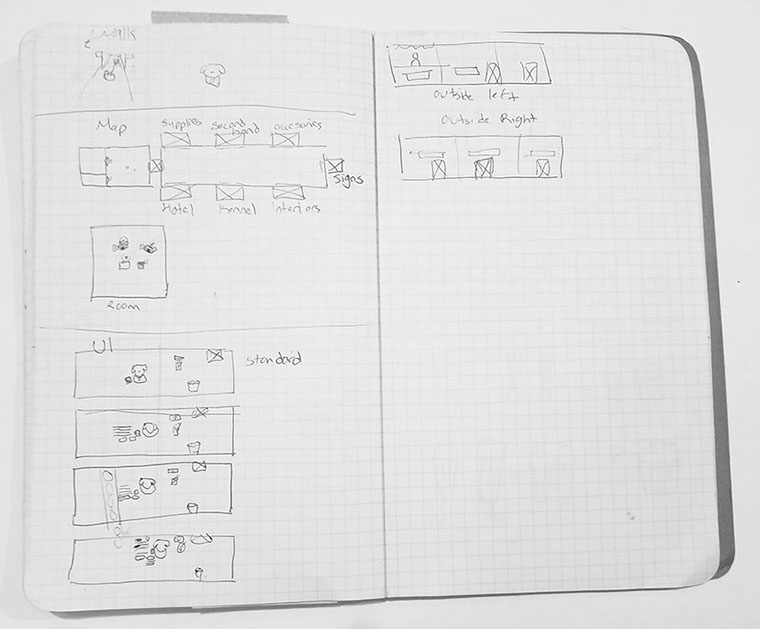 Walls
Map
Supplies
Second
hand
accesories
Signs
Hotel
Kennel
Interiors
Room
UI
Standard
outside left
outside Right